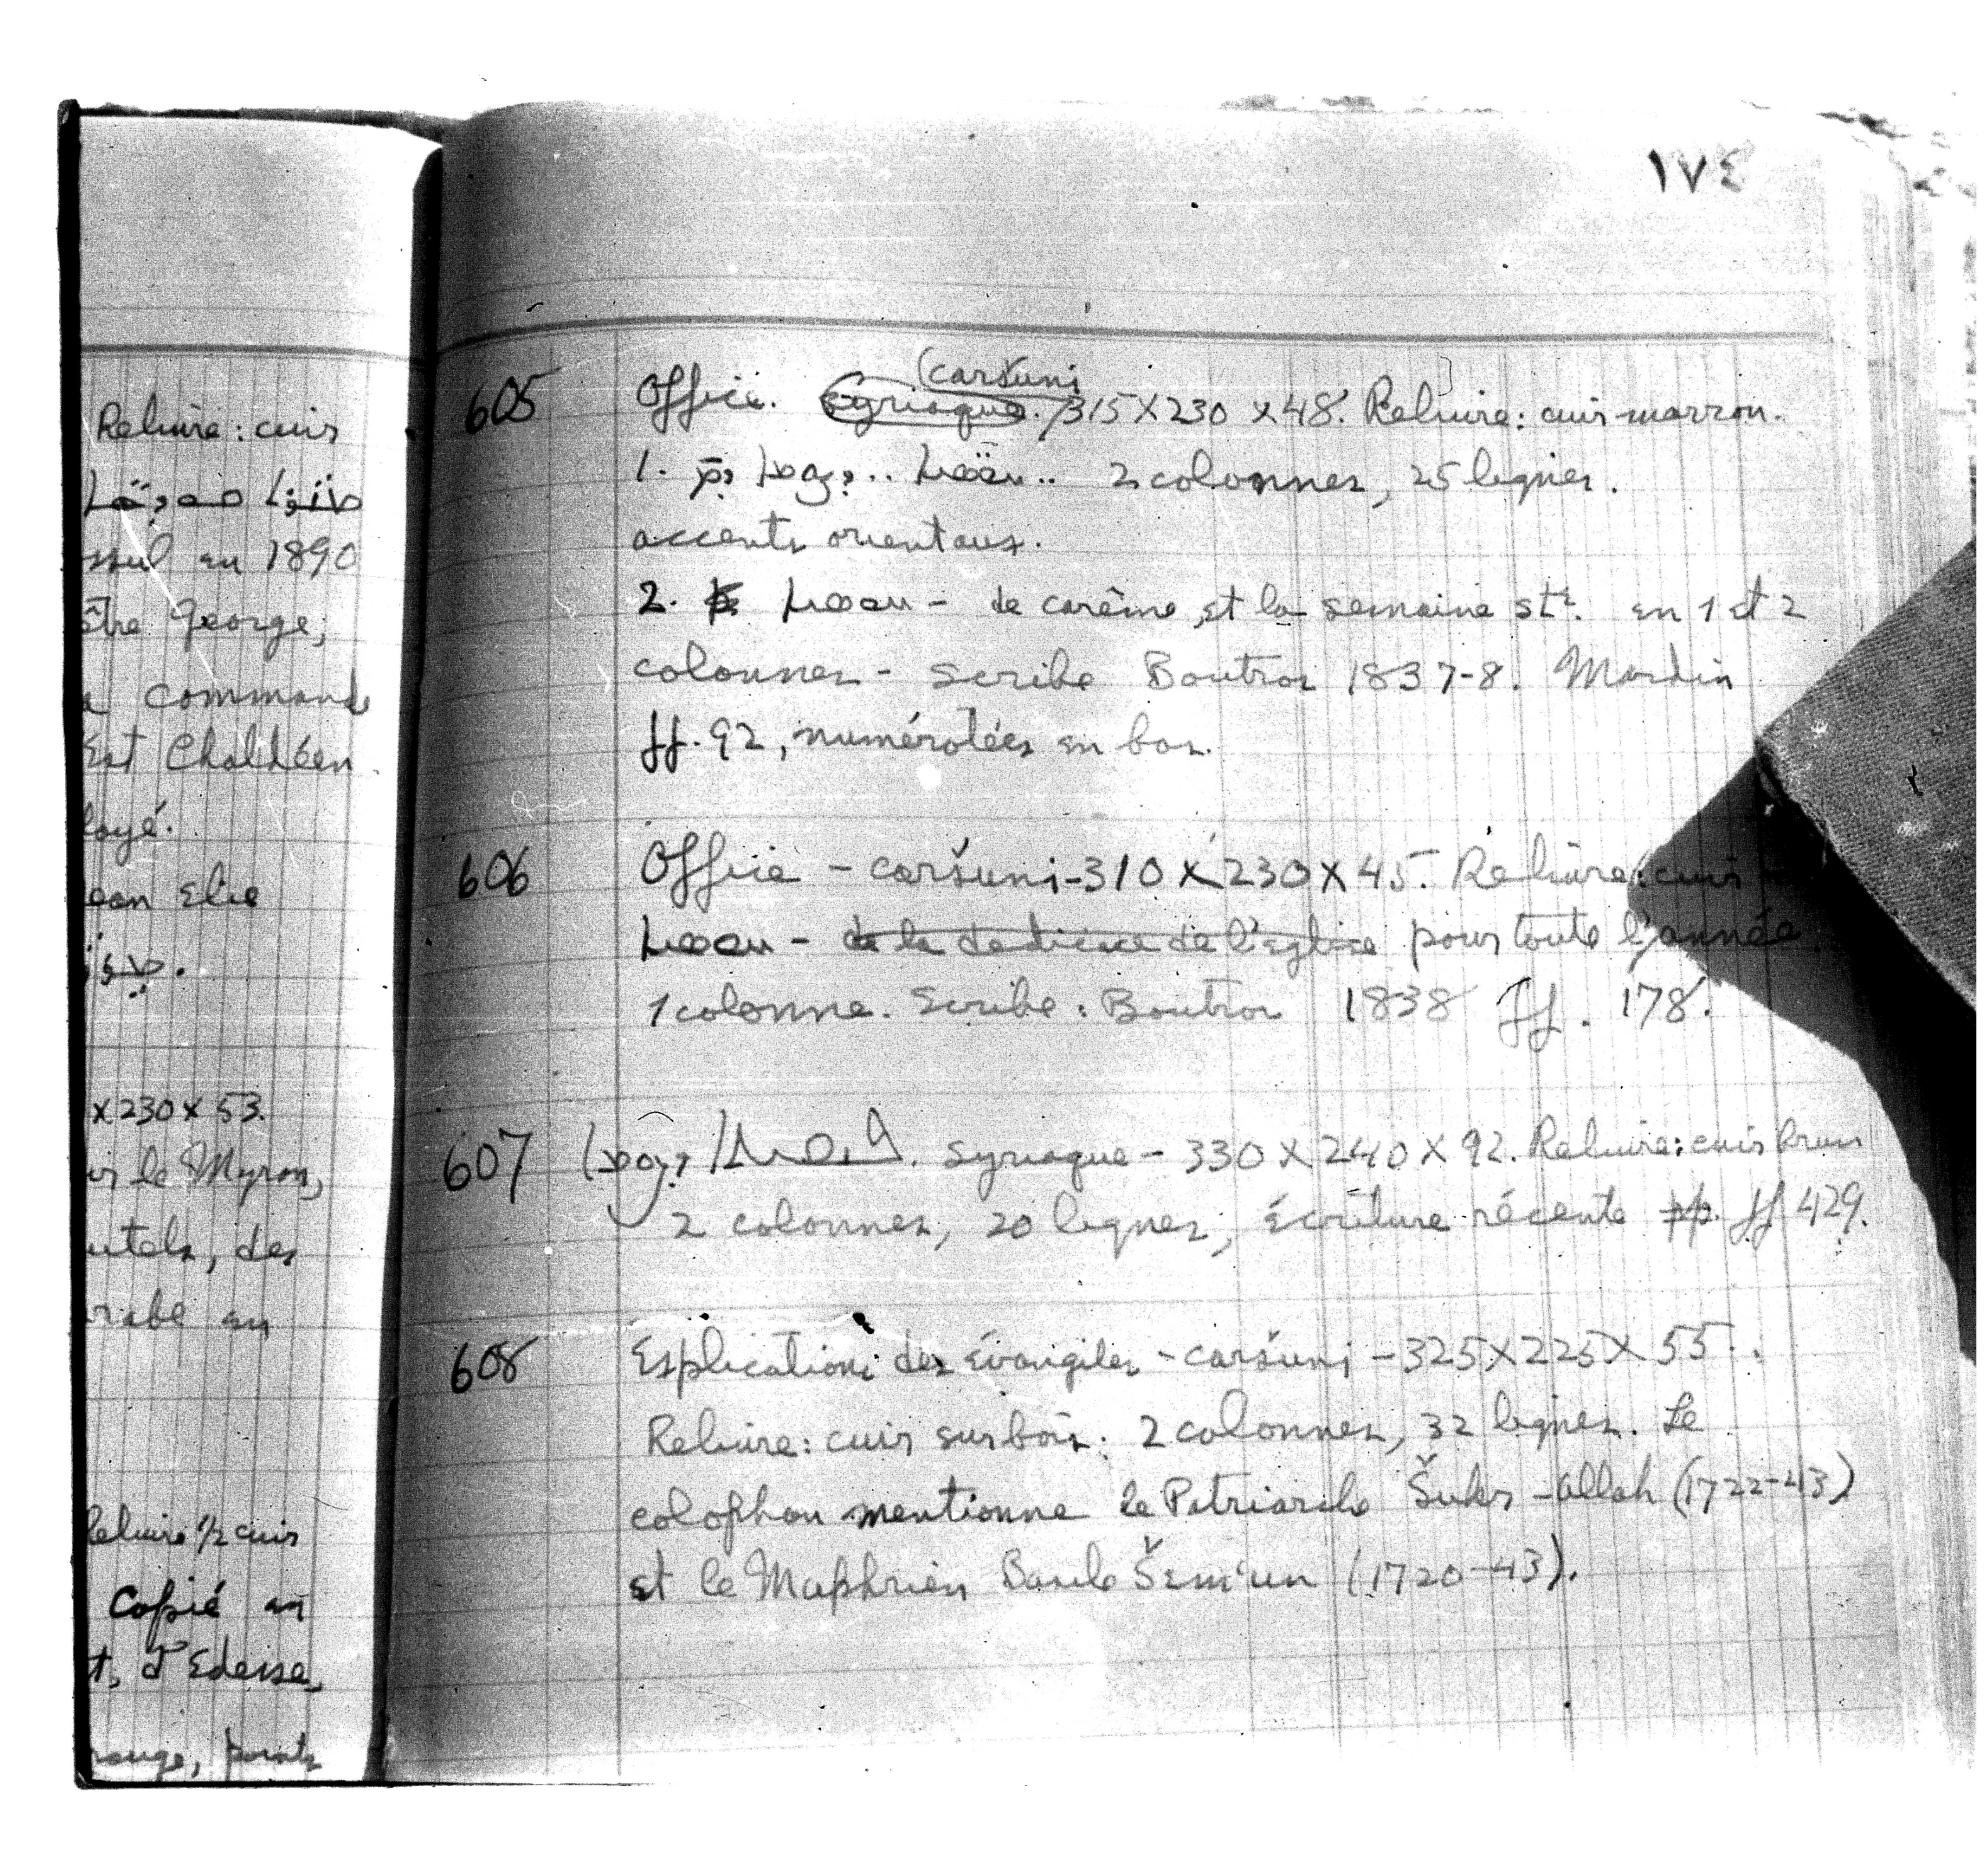 Reliure: cuir
1890
ôtre George,
a commande
Est Chaldéen
loyé.
ean Elie
x 230 x 53.
ur le Myron,
utels, des
rabe en
Reliure 1/2 cuir
Copié en
t, d'Edesse,
rouge, points
١٧٤
605 Office. Syriaque. (caršuni) 315 X 230 x 48. Reliure: cuir marron.
1. 2 colonnes, 25 lignes.
accents orientaux.
2. ܚܘܣܝܐ - de carême et la semaine ste. en 1 et 2
colonnes - Scribe Boutros 1837-8. Mardin
ff. 92, numérotées en bas.
606 Office - caršuni - 310 X 230 X 45. Reliure: cuir -
ܚܘܣܝܐ - de la dedicace de l'eglise pour toute l'année.
1 colonne. Scribe: Boutros 1838 ff. 178.
607 Syriaque - 330 X 240 X 92. Reliure: cuir brun
2 colonnes, 20 lignes, écriture récente pp. ff 429.
608 Esplications des évangiles - caršuni - 325 X 225 X 55.
Reliure: cuir sur bois. 2 colonnes, 32 lignes. Le
colophon mentionne le Patriarche Šukr-allah (1722-43)
et le Maphrien Basile Šem'un (1720-43).